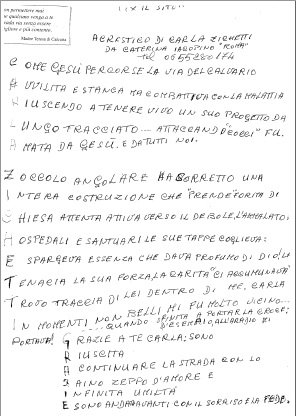 on permettere mai
e qualcuno venga a te
vada via senza essere
migliore e più contento.
Madre Teresa di Calcutta
(X IL SITO)
ACROSTICO DI CARLA ZICHETTI
DA CATERINA IBROPINO "ROMA"
COME GESÙ PERCORSE LA VIA DEL CALVARIO
AVVILITA E STANCA MA COMBATTIVA CON LA MALATTIA
RIUSCENDO A TENERE VIVO UN SUO PROGETTO DA
LUNGO TRACCIATO... ATTACCANDO "COCCI" FU
AMATA DA GESÙ, E DA TUTTI NOI.
ZOCCOLO ANGOLARE HA SORRETTO UNA
INTERA COSTRUZIONE CHE "PRENDE" FORMA DI
CHIESA ATTENTA ATTIVA VERSO IL DEBOLE, L'AMMALATO:
HOSPEDALI E SANTUARI LE SUE TAPPE COGLIEVA:
E SPARGEVA ESSENZA CHE DAVA PROFUMO DI DIO LA
TENACIA LA SUA FORZA, LA CARITÀ "CI ACCOMUNAVA"
TROVO TRACCIA DI LEI DENTRO DI ME, CARLA
IN MOMENTI NON BELLI MI FU MOLTO VICINO...
...QUANDO VENITA A PORTAR LA CROCE;
PORTAVA! D'ESEMPIO, ALL'ARADIO DI
GRAZIE A TE CARLA; SONO
RIUSCITA
A CONTINUARE LA STRADA CON LO
ZAINO ZEPPO D'AMORE E
INFINITA UMILTÀ
E SONO ANDATA AVANTI CON IL SORRISO E LA FEDE.